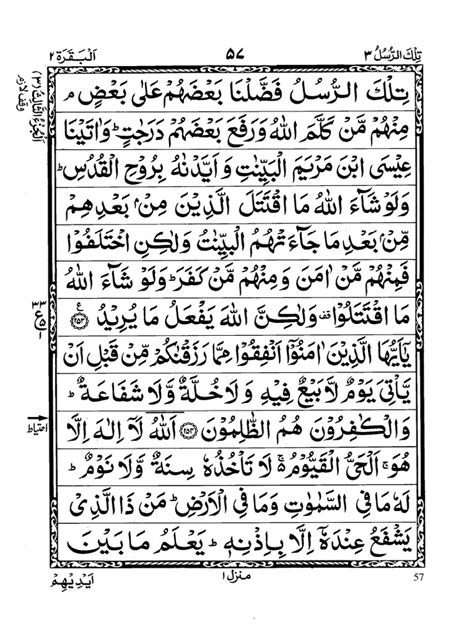 تِلْكَ الرُّسُلُ ٣ ٥٧ اَلْبَقَرَة ٢
تِلْكَ الرُّسُلُ فَضَّلْنَا بَعْضَهُمْ عَلٰى بَعْضٍ ۘ
مِنْهُمْ مَّنْ كَلَّمَ اللّٰهُ وَرَفَعَ بَعْضَهُمْ دَرَجٰتٍ ؕ وَاٰتَيْنَا
عِيْسَى ابْنَ مَرْيَمَ الْبَيِّنٰتِ وَاَيَّدْنٰهُ بِرُوْحِ الْقُدُسِ ؕ
وَلَوْ شَآءَ اللّٰهُ مَا اقْتَتَلَ الَّذِيْنَ مِنْۢ بَعْدِهِمْ
مِّنْۢ بَعْدِ مَا جَآءَتْهُمُ الْبَيِّنٰتُ وَلٰكِنِ اخْتَلَفُوْا
فَمِنْهُمْ مَّنْ اٰمَنَ وَمِنْهُمْ مَّنْ كَفَرَ ؕ وَلَوْ شَآءَ اللّٰهُ
مَا اقْتَتَلُوْا ۫ وَلٰكِنَّ اللّٰهَ يَفْعَلُ مَا يُرِيْدُ ﴿٢٥٣﴾ ع
يٰۤاَيُّهَا الَّذِيْنَ اٰمَنُوْۤا اَنْفِقُوْا مِمَّا رَزَقْنٰكُمْ مِّنْ قَبْلِ اَنْ
يَّاْتِيَ يَوْمٌ لَّا بَيْعٌ فِيْهِ وَلَا خُلَّةٌ وَّلَا شَفَاعَةٌ ؕ
وَالْكٰفِرُوْنَ هُمُ الظّٰلِمُوْنَ ﴿٢٥٤﴾ اَللّٰهُ لَاۤ اِلٰهَ اِلَّا
هُوَ ۚ اَلْحَيُّ الْقَيُّوْمُ ۚ لَا تَاْخُذُهٗ سِنَةٌ وَّلَا نَوْمٌ ؕ
لَهٗ مَا فِي السَّمٰوٰتِ وَمَا فِي الْاَرْضِ ؕ مَنْ ذَا الَّذِيْ
يَشْفَعُ عِنْدَهٗۤ اِلَّا بِاِذْنِهٖ ؕ يَعْلَمُ مَا بَيْنَ
اَيْدِيْهِمْ منزل ١ 57
اَلْجُزْءُ الثَّالِثُ (٣)
وقف لازم
احتیاط